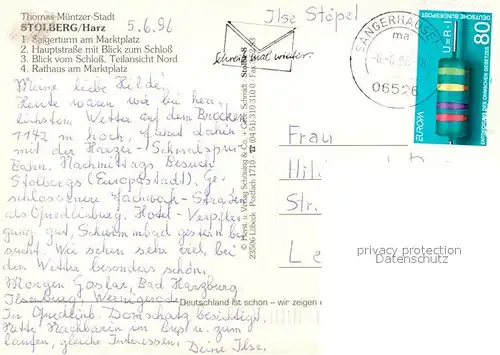 Thomas-Müntzer-Stadt
STOLBERG/Harz
5.6.96
1. Saigerturm am Marktplatz
2. Hauptstraße mit Blick zum Schloß
3. Blick vom Schloß, Teilansicht Nord
4. Rathaus am Marktplatz
Meine liebe Hilde,
Heute waren wir bei herr-
lichstem Wetter auf dem Brocken
1142 m hoch, dahin
mit der Harzer-Schmalspur-
Bahn. Nachmittags Besuch
Stolbergs (Europastadt). Ge-
schlossenere Fachwerk-Straßen
als Quedlinburg. Hotel-Verpfle-
gung gut, Schwimmbad gestern be-
sucht. Wir sehen sehr viel, bei
dem Wetter besonders schön.
Morgen Goslar, Bad Harzburg
Ilsenburg, Wernigerode
In Quedlinb. Domschatz besichtigt.
Nette Nachbarin im Bus u. zum
laufen, gleiche Interessen. Deine Ilse.
Ilse Stöpel
schreib mal wieder.
© Herst. u. Verlag Schöning & Co. + Gebr. Schmidt
23506 Lübeck · Postfach 1710
SANGERHAUSEN
ma
06526
80
DEUTSCHE BUNDESPOST
U=R·I
EUROPA
ENTDECKUNG DES OHMSCHEN GESETZES
Frau
Hil
Str.
Le
privacy protection
Datenschutz
Deutschland ist schön – wir zeigen